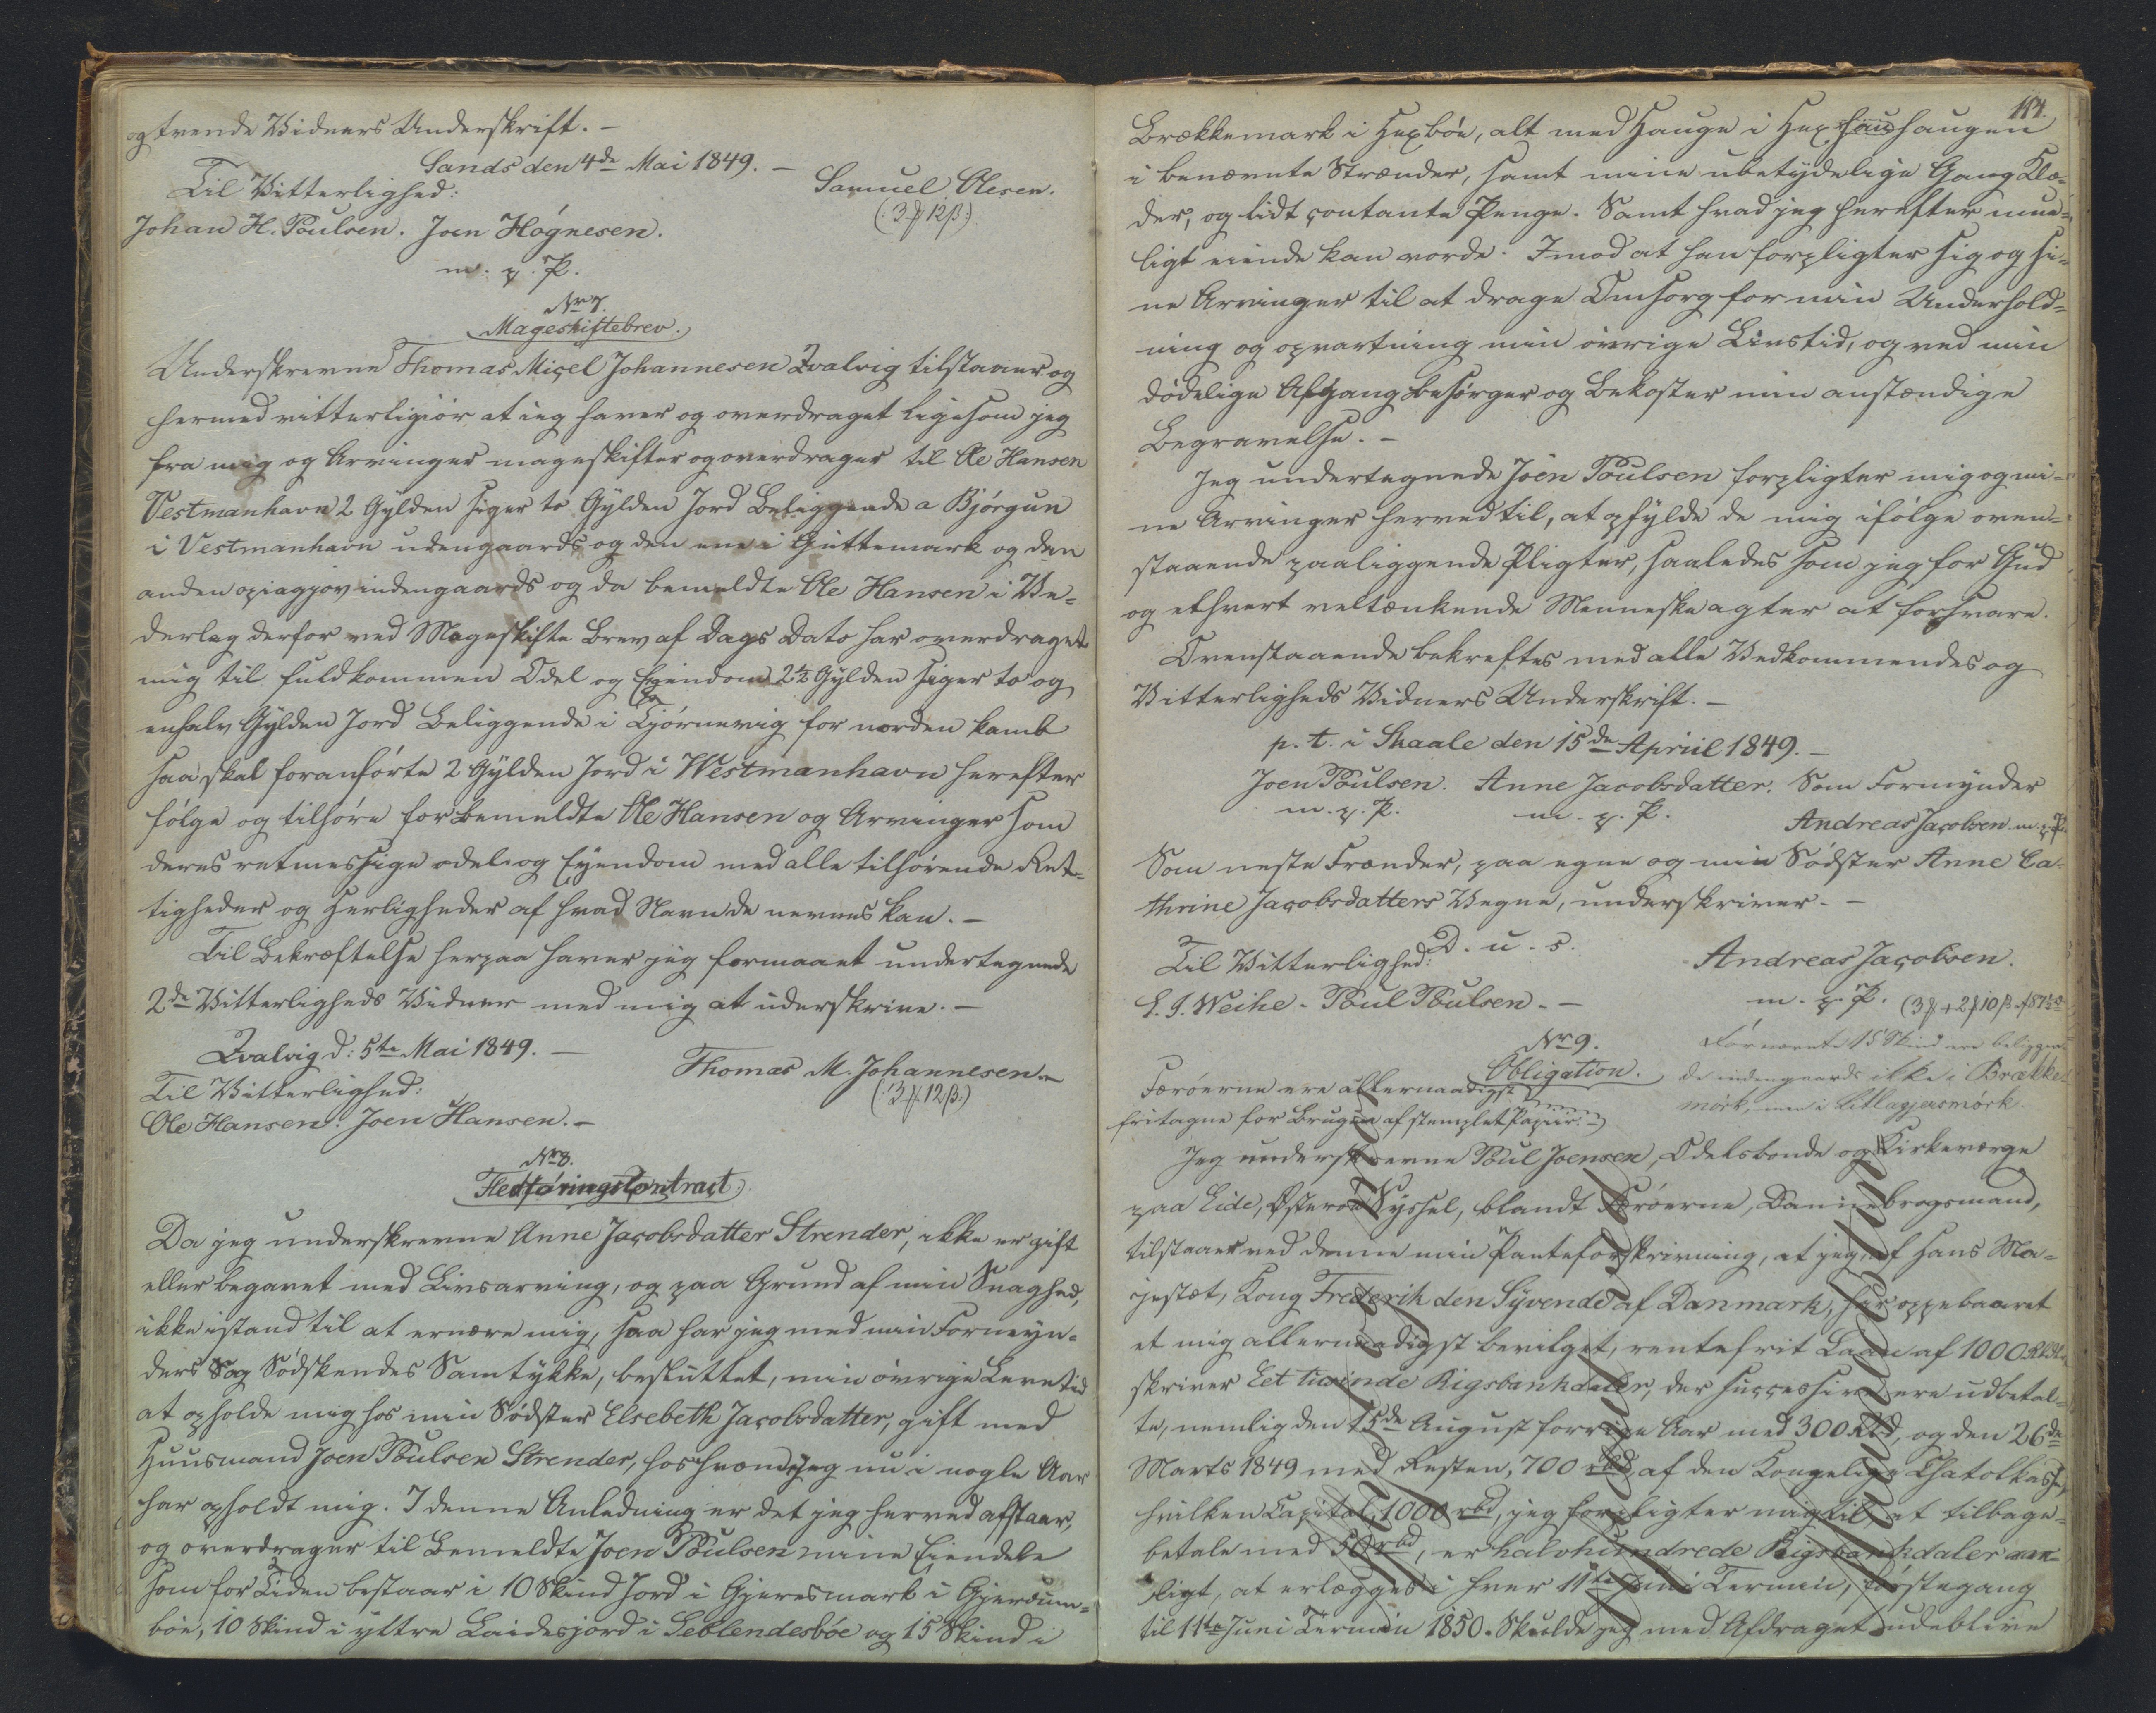 og tvende Vidners Underskrift. –
Sands den 4de Mai 1849. –
Til Vitterlighed:
Samuel Olesen.
Johan H. Poulsen. Joen Høgnesen.
(: 3 ƒ 12 β:)
m. p. P.
No 7.
Mageskiftebrev.
Underskrevne Thomas Miçel Johannesen Qvalvig tilstaaer og
hermed vitterligiör, at ieg haver og overdraget ligesom jeg
fra mig og Arvinger mageskifter og overdrager til Ole Hansen
Vestmanhavn 2 Gylden siger to Gylden Jord Beliggende a Bjórgun
i Vestmanhavn udengaards og den ene i Guttemark og den
anden indengaards og da bemeldte Ole Hansen i Ve-
derlag derfor ved Mageskifte Brev af Dags Dato har overdraget
mig til fuldkommen Odel og Eyendom 2½ Gylden siger to og
enhalv Gylden Jord Beliggende i Tjórnevig for norden kamb
saa skal foranförte 2 Gylden Jord i Westmanhavn herefter
fölge og tilhøre forbemeldte Ole Hansen og Arvinger som
deres retmessige odel og Eyendom med alle tilhørende Ret-
tigheder og Herligheder af hvad Navn de nevnes kan. –
Til Bekræftelse herpaa haver jeg formaaet undertegnede
2de Vitterligheds Vidner med mig at underskrive. –
Qvalvig d: 5te Mai 1849. –
Thomas M. Johannesen –
Til Vitterlighed:
(: 3 ƒ. 12 β:)
Ole Hansen. Joen Hansen. –
No 8.
FledføringsContract.
Da jeg underskrevne Anne Jaçobsdatter Strender, ikke er gift
eller begavet med Livsarving, og paa Grund af min Svaghed,
ikke istand til at ernære mig, saa har jeg med min Formyn-
ders og Södskendes Samtykke, besluttet, min óvrige Levetid
at opholde mig hos min Södster Elsebeth Jaçobsdatter, gift med
Huusmand Joen Poulsen Strender, hos hvem jeg nu i nogle Aar
har opholdt mig. I denne Anledning er det jeg herved afstaar,
og overdrager til Bemeldte Joen Poulsen mine Eiendele
som for Tiden bestaar i 10 Skind Jord i Gjeresmark i Gjerdum-
bóe, 10 Skind i yttre Laidesjord i Seblendesbóe og 15 Skind i
114.
Brækkemark i Husbóe, alt med Hauge i Hushaugen
i benævnte Strender, samt mine ubetydelige Gang Klæ-
der, og lidt çontante Penge. Samt hvad jeg herefter mue-
ligt eiende kan vorde. Imod at han forpligter sig og si-
ne Arvinger til at drage Omsorg for min Underhold-
ning og opvartning min övrige Livstid, og ved min
dödelige Afgang besörger og Bekoster min anstændige
Begravelse. –
Jeg undertegnede Joen Poulsen forpligter mig og mi-
ne Arvinger herved til, at opfylde de mig ifölge oven-
staaende paaliggende Pligter, saaledes som jeg for Gud
og ethvert veltænkende Menneske agter at forsvare.
Ovenstaaende bekreftes med alle Vedkommendes og
Vitterligheds Vidners Underskrift. –
p. t. i Skaale den 15de April 1849. –
Joen Poulsen. Anne Jacobsdatter. Som Formynder
m. p. P. m. p. P. Andreas Jaçobsen m. p. P.
Som neste Frænder, paa egne og min Södster Anne Ca-
thrine Jaçobsdatters Vegne, underskriver. –
D. u. s.
Til Vitterlighed:
Andreas Jaçobsen.
E. J. Weihe. Poul Poulsen. –
m. p. P.
No 9.
Fornævnte 15 Skind ere beliggen-
Obligation.
de indengaards ikke i Brække-
Færóerne ere allernaadigst
mórk, men i
fritagne for Brugen af stemplet Papiir.
Jeg underskrevne Poul Joensen, Odelsbonde og Kirkeværge
paa Eide, Österóe Syssel, blandt Færóerne, Dannebrogsmand,
tilstaaer ved denne min Panteforskrivning, at jeg, af Hans Ma-
jestæt, Kong Frederik den Syvende af Danmark, har oppebaaret
et mig allernaadigst bevilget, rentefrit Laan af 1000 Rbd.
skriver Eet tusinde Rigsbankdaler, der suççessive ere udbetal-
te, nemlig den 15de August forrige Aar med 300 Rbd, og den 26de
Marts 1849 med Resten, 700 rbd af den Kongelige Chatolkasse,
hvilken Capital, 1000 rbd, jeg forpligter mig til, at tilbage-
betale med 50 rbd, er halvhundrede Rigsbankdaler aar-
ligt, at erlægges i hver 11te Juni Termin, förstegang
til 11te Juni Termin 1850. Skulde jeg med Afdraget udeblive